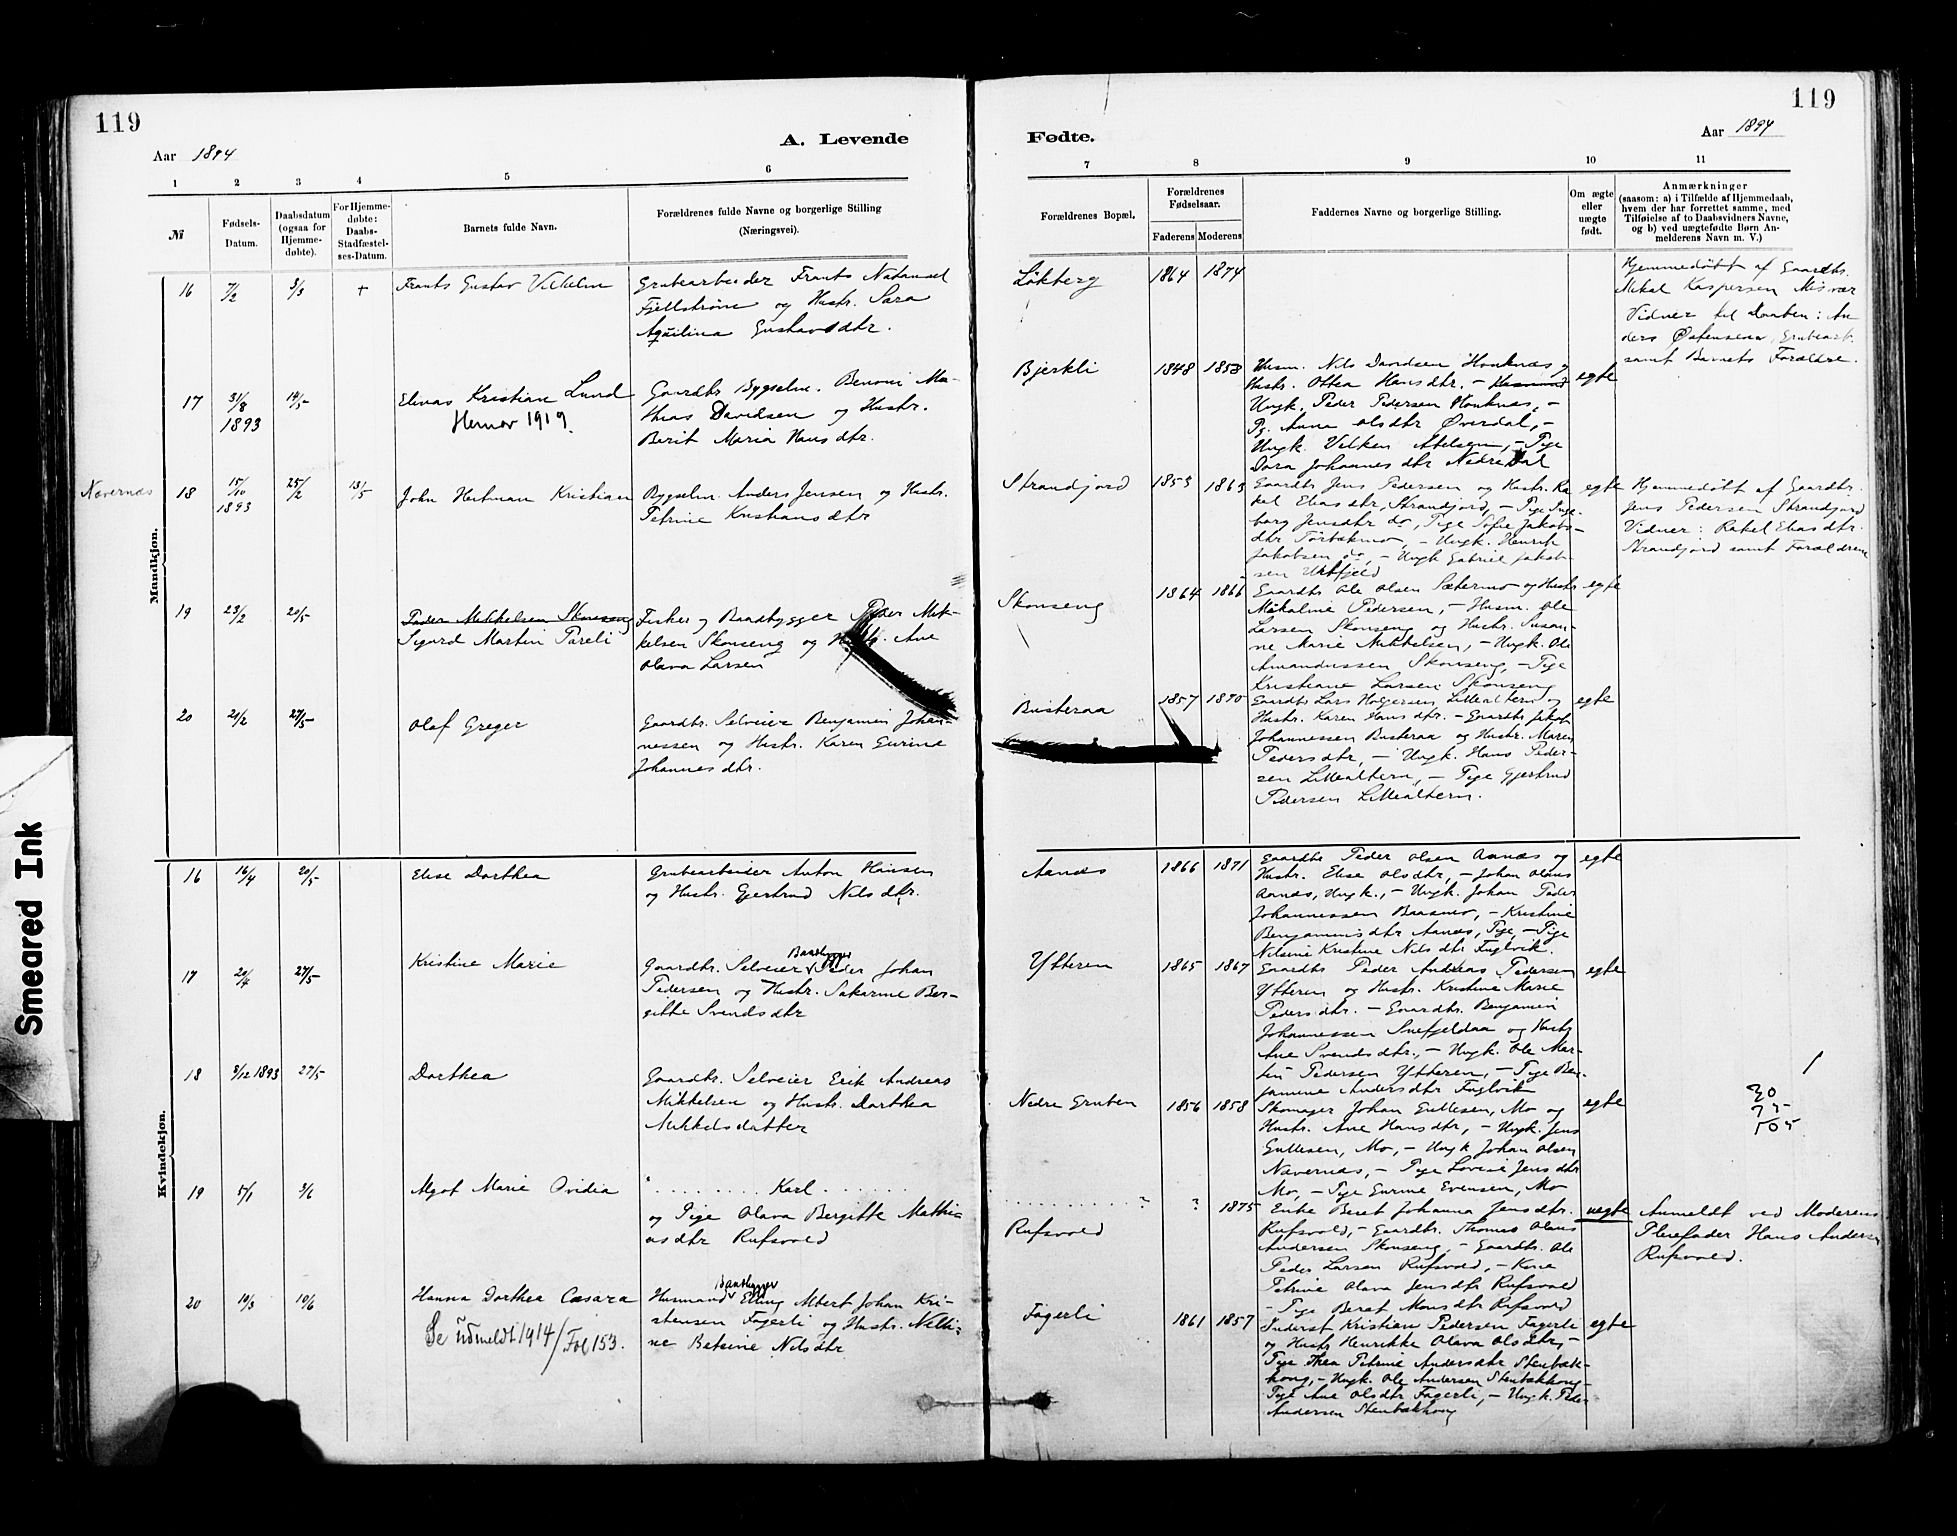 119
A. Levende
Aar 1894
1 2 3 4 5 6
№
Fødsels-
Datum.
Daabsdatum
(ogsaa for
Hjemme-
døbte).
For Hjemme-
døbte:
Daabs-
Stadfæstel-
ses-Datum.
Barnets fulde Navn.
Forældrenes fulde Navne og borgerlige Stilling
(Næringsvei).
Mandkjøn.
16 7/2 3/3 + Frants Gustav Vilhelm
Grubearbeider Frants Natanael
Fjellstrøm og Hustr. Sara
Aqvilina Gustavsdtr.
17 31/8 14/5
1893
Elinas Kristian Lund
Hernov 1919.
Gaardbr. Bygselm. Benoni Ma-
thias Davidsen og Hustr.
Berit Maria Hansdtr.
Nævernæs 18 15/10 25/2 13/5
1893
John Hertman Kristian
Bygselm. Anders Jensen og Hustr.
Petrine Kristiansdtr
19 23/2 20/5 Peder Mikkelsen Skonseng
Sigurd Martin Pareli
Fisker og Baadbygger Peder Mik-
kelsen Skonseng og Hustr. Ane
Olava Larsen
20 21/2 27/5 Olaf Greger
Gaardbr. Selveier Benjamin Johan-
nessen og Hustr. Karen Gurine
Johannesdtr.
Kvindekjøn.
16 16/4 20/5 Elise Dorthea
Grubearbeider Anton Hansen
og Hustr. Gjertrud Nilsdtr.
17 20/4 27/5 Kristine Marie
Baadbygger
Gaardbr. Selveier Peder Johan
Pedersen og Hustr. Sakarine Ber-
gitte Svendsdtr
18 3/12 1893 27/5 Dorthea
Gaardbr. Selveier Erik Andreas
Mikkelsen og Hustr. Dorthea
Mikkelsdatter
19 5/1 3/6 Agot Marie Ovidia
Karl
og Pige Olava Bergitte Mathi-
asdtr Rufsvold
20 10/3 10/6 Hanna Dorthea Cæsara
Se udmeldt 1914/Fol 153.
Baadbygger
Husmand Elling Albert Johan Kri-
stensen Fagerli og Hustr. Nelli-
ne Betsine Nilsdtr
119
Fødte.
Aar 1894
7 8 9 10 11
Forældrenes Bopæl.
Forældrenes
Fødselsaar.
Faderens Moderens
Faddernes Navne og borgerlige Stilling
Om ægte
eller
uægte
født.
Anmærkninger
(saasom: a) i Tilfælde af Hjemmedaab,
hvem der har forrettet samme, med
Tilføielse af to Daabsvidners Navne,
og b) ved uægtefødte Børn An-
melderens Navn m. V.)
Løkberg 1864 1874
Hjemmedøbt af Gaardbr.
Mikal Kaspersen Misvær
Vidner til Daaben: An-
ders Østensen, Grubearb.
samt Barnets Forældre.
Bjerkli 1848 1853
Husm. Nils Davidsen Honknæs og
Hustr. Ottea Hansdtr. –
Ungk. Peder Pedersen Honknæs, –
Pg. Anna Olsdtr Øverdal, –
Ungk. Velken Abelsen, – Pige
Dora Johannesdtr Nedredal
egte
Strandjord 1853 1863
Gaardbr Jens Pedersen og Hustr. Ra-
kel Eliasdtr, Strandjord, – Pige Inge-
borg Jensdtr do, Pige Sofie Jakobs-
dtr Tørbækmo, – Ungk. Henrik
Jakobsen do, – Ungk Gabriel Jakob-
sen Urtfjeld
egte
Hjemmedøbt af Gaardbr.
Jens Pedersen Strandjord
Vidner: Rakel Eliasdtr.
Strandjord samt Forældrene
Skonseng 1864 1866
Gaardbr Ole Olsen Sætermo og Hustr
Mikaline Pedersen, – Husm. Ole
Larsen Skonseng og Hustr. Susan-
ne Marie Mikkelsen, – Ungk. Ole
Amandussen Skonseng, – Pige
Kristiane Larsen Skonseng
egte
Busteraa 1857 1870
Gaardbr Lars Holgersen Lillealtern og
Hustr. Karen Hansdtr. – Gaardbr Jakob
Johannessen Busteraa og Hustr. Maren
Pedersdtr, – Ungk. Hans Peder-
sen Lillealtern, – Pige Gjertrud
Pedersen Lillealtern.
egte
Aanæs 1866 1871
Gaardbr Peder Olsen Aanæs og
Hustr. Elise Olsdtr, – Johan Olaus
Aanæs, Ungk., – Ungk. Johan Peder
Johannessen Baasmo, – Kristine
Benjaminsdtr Aanæs, Pige, – Pige
Nilsine Kristine Nilsdtr Fuglvik.
egte
Ytteren 1865 1867
Gaardbr Peder Andreas Pedersen
Ytteren og Hustr. Kristine Marie
Pedersdtr. – Gaardbr. Benjamin
Johannessen Snefjeldaa og Hustr
Ane Svendsdtr., – Ungk. Ole Mar-
tin Pedersen Ytteren, – Pige Ben-
jamine Andersdtr Fuglvik
egte
Nedre Gruben 1856 1858
Skomager Johan Gullesen, Mo og
Hustr. Ane Hansdtr, – Ungk. Jens
Gullesen, Mo, – Ungk Johan Olsen
Nævernæs, – Pige Lovise Jensdtr
Mo, – Pige Gurine Evensen, Mo
egte
30
75
105
? ? 1875
Rufsvold
Enke Beret Johanna Jensdtr.
Rufsvold, – Gaardbr. Thomas Olaus
Andersen Skonseng, – Gaardbr. Ole
Peder Larsen Rufsvold, – Kone
Petrine Olava Jensdtr Rufsvold
– Pige Beret Monsdtr Rufsvold
uegte
Anmeldt ved Moderens
Pleiefader Hans Andersen
Rufsvold.
Fagerli 1861 1857
Inderst Kristian Pedersen Fagerli
og Hustr Henrikke Olava Olsdtr, –
Pige Thea Petrine Andersdtr Stenbæk-
houg, – Ungk. Ole Andersen Stenbækhoug –
Pige Ane Olsdtr Fagerli, – Ungk. Peder
Andersen Stenbækhoug
egte
Smeared Ink